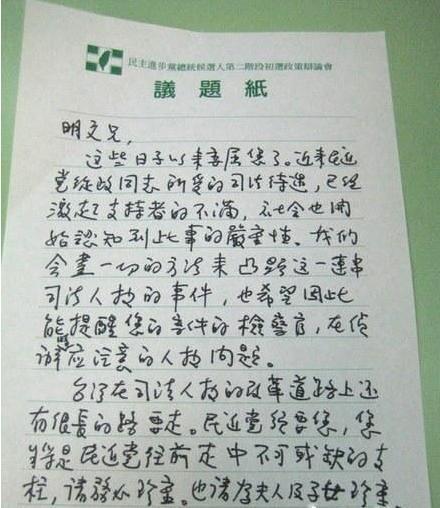 民主進步黨總統候選人第二階段初選政策辯論會
議題紙
明文兄,
這些日子以來委屈您了。近來民進
党從政同志所受的司法待遇,已經
激起了支持者的不滿,社会也開
始認知到此事的嚴重性。我們
会盡一切的方法來凸顯這一連串
司法人权的事件,也希望因此
能提醒您的案件的檢察官,在偵
辦應注意的人权問題。
台湾在司法人权的改革道路上还
有很長的路要走。民近党須要您,您
將是民近党往前走中不可或缺的支
柱,請務必珍重。也請夫人及子女珍重。